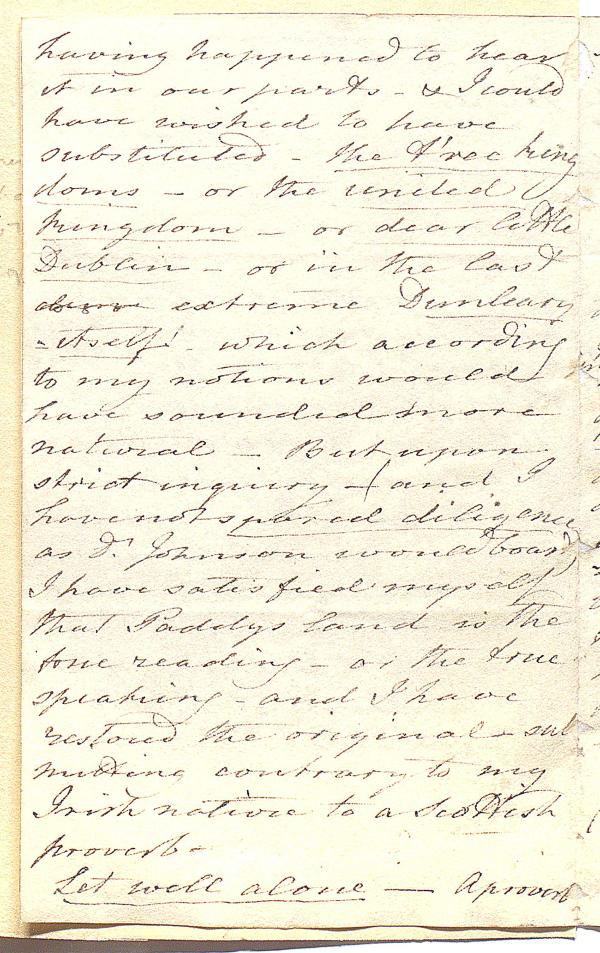 having happened to hear
it in our parts - & I could
have wished to have
substituted - the three king
doms - or the united
kingdom - or dear little
Dublin - or in the last
extreme Dunleary
-itself! - which according
to my notions would
have sounded more
natural - But upon
strict inquiry - (and I
have not spared diligence
as Dr. Johnson would boast)
I have satisfied myself
that Paddys land is the
true reading - or the true
speaking - and I have
restored the original - sub
mitting contrary to my
Irish native to a Scottish
proverb -
Let well alone — A proverb